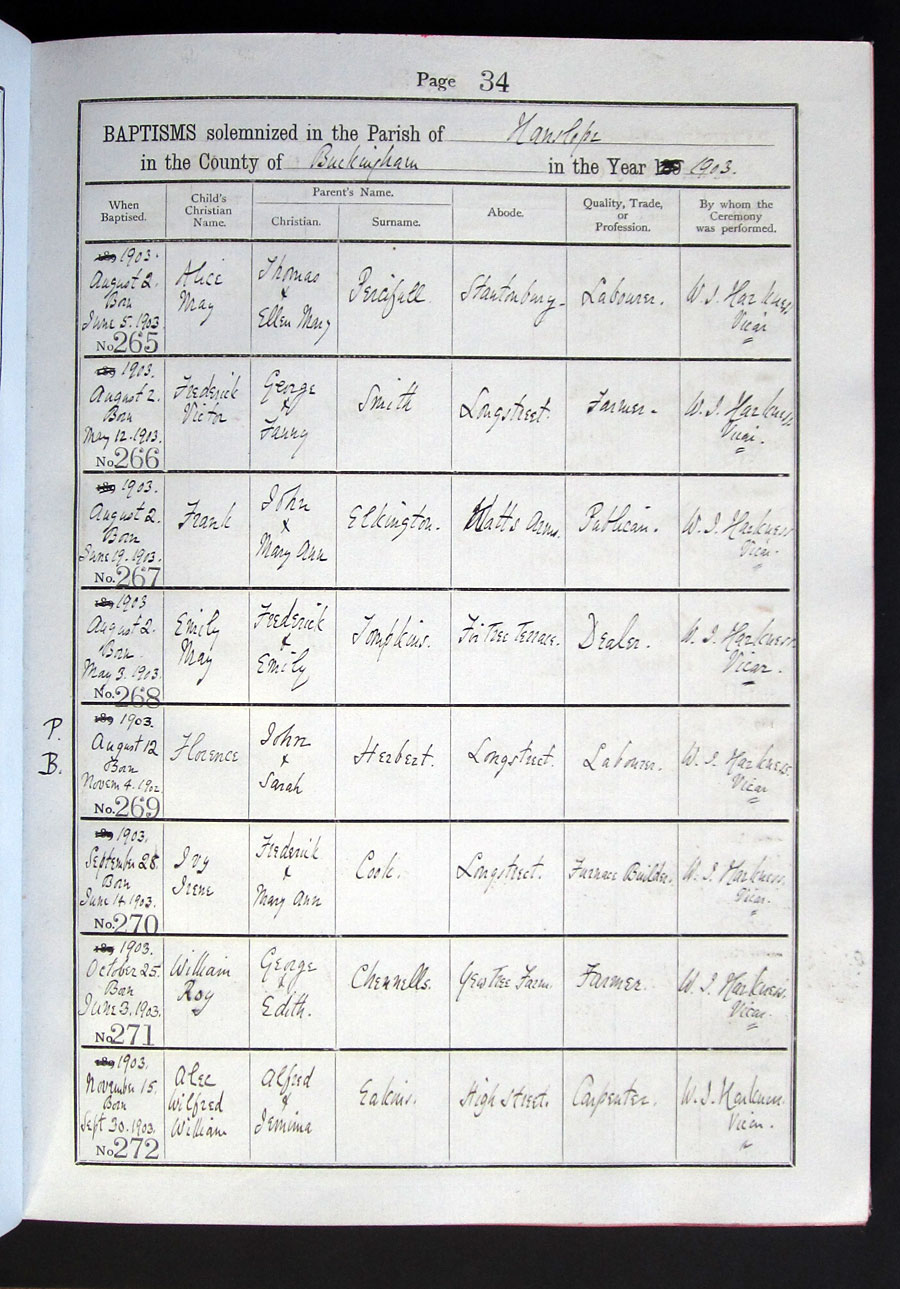 Page 34
BAPTISMS solemnized in the Parish of Hanslope
in the County of Buckingham in the Year 1903.
When Baptised.
Child's Christian Name.
Parent's Name.
Christian.
Surname.
Abode.
Quality, Trade, or Profession.
By whom the Ceremony was performed.
1903.
August 2.
Born
June 5. 1903
No. 265
Alice
May
Thomas
&
Ellen Mary
Percifull
Stantonbury-
Labourer.
W. J. Harkness
Vicar
1903.
August 2.
Born
May 12. 1903.
No. 266
Frederick
Victor
George
&
Fanny
Smith
Longstreet.
Farmer-
W. J. Harkness
Vicar.
1903.
August 2.
Born
June 19. 1903.
No. 267
Frank
John
&
Mary Ann
Elkington.
Watts Arms.
Publican.
W. J. Harkness
Vicar.
1903
August 2.
Born
May 3. 1903.
No. 268
Emily
May
Frederick
&
Emily
Tompkins.
Fir Tree Terrace.
Dealer.
W. J. Harkness
Vicar.
P.
B.
1903.
August 12
Born
Novem 4. 1902.
No. 269
Florence
John
&
Sarah
Herbert.
Longstreet.
Labourer.
W. J. Harkness.
Vicar
1903.
September 28.
Born
June 14. 1903.
No. 270
Ivy
Irene
Frederick
&
Mary Ann
Cook.
Longstreet.
Furnace Builder.
W. J. Harkness.
Vicar.
1903.
October 25.
Born
June 3. 1903.
No. 271
William
Roy
George
&
Edith.
Chennells.
Yew Tree Farm.
Farmer.
W. J. Harkness.
Vicar.
1903.
November 15.
Born
Sept 30. 1903.
No. 272
Alec
Wilfred
William
Alfred
&
Jemima
Eakins.
High Street.
Carpenter.
W. J. Harkness.
Vicar.